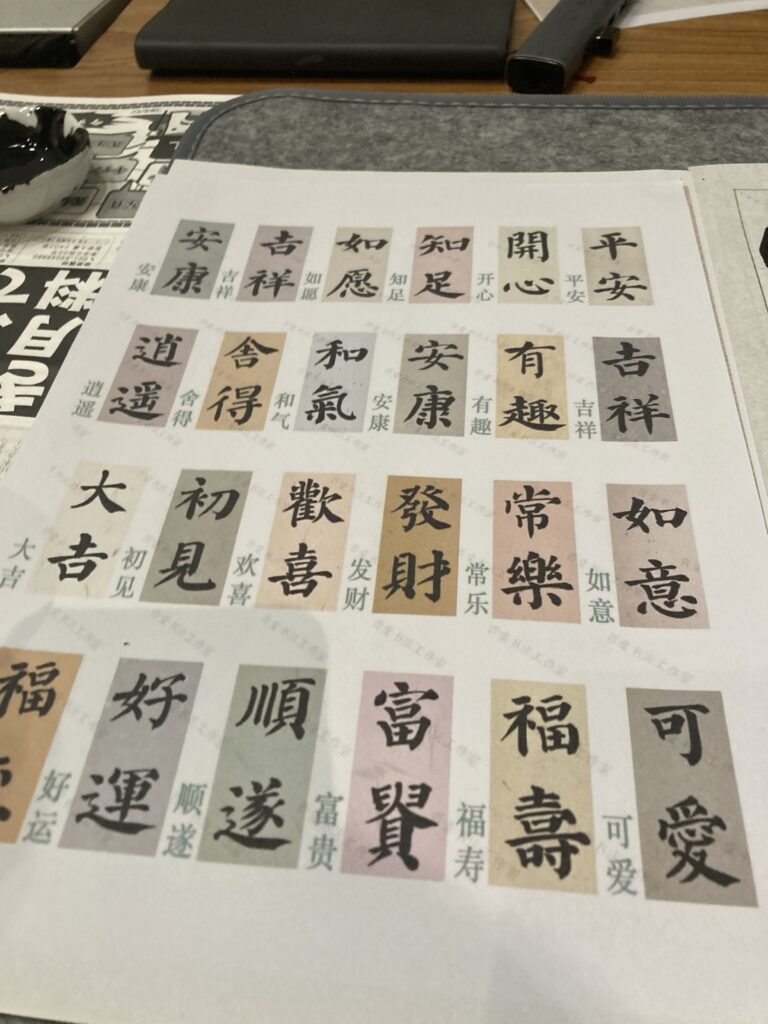 安康
安康
吉祥
吉祥
如愿
如愿
知足
知足
开心
開心
平安
平安
逍遥
逍遥
舍得
舍得
和气
和氣
安康
安康
有趣
有趣
吉祥
吉祥
大吉
大吉
初见
初見
欢喜
歡喜
发财
發財
常乐
常樂
如意
如意
福
好运
好運
顺遂
順遂
富贵
富貴
福寿
福壽
可爱
可愛
书法工作室